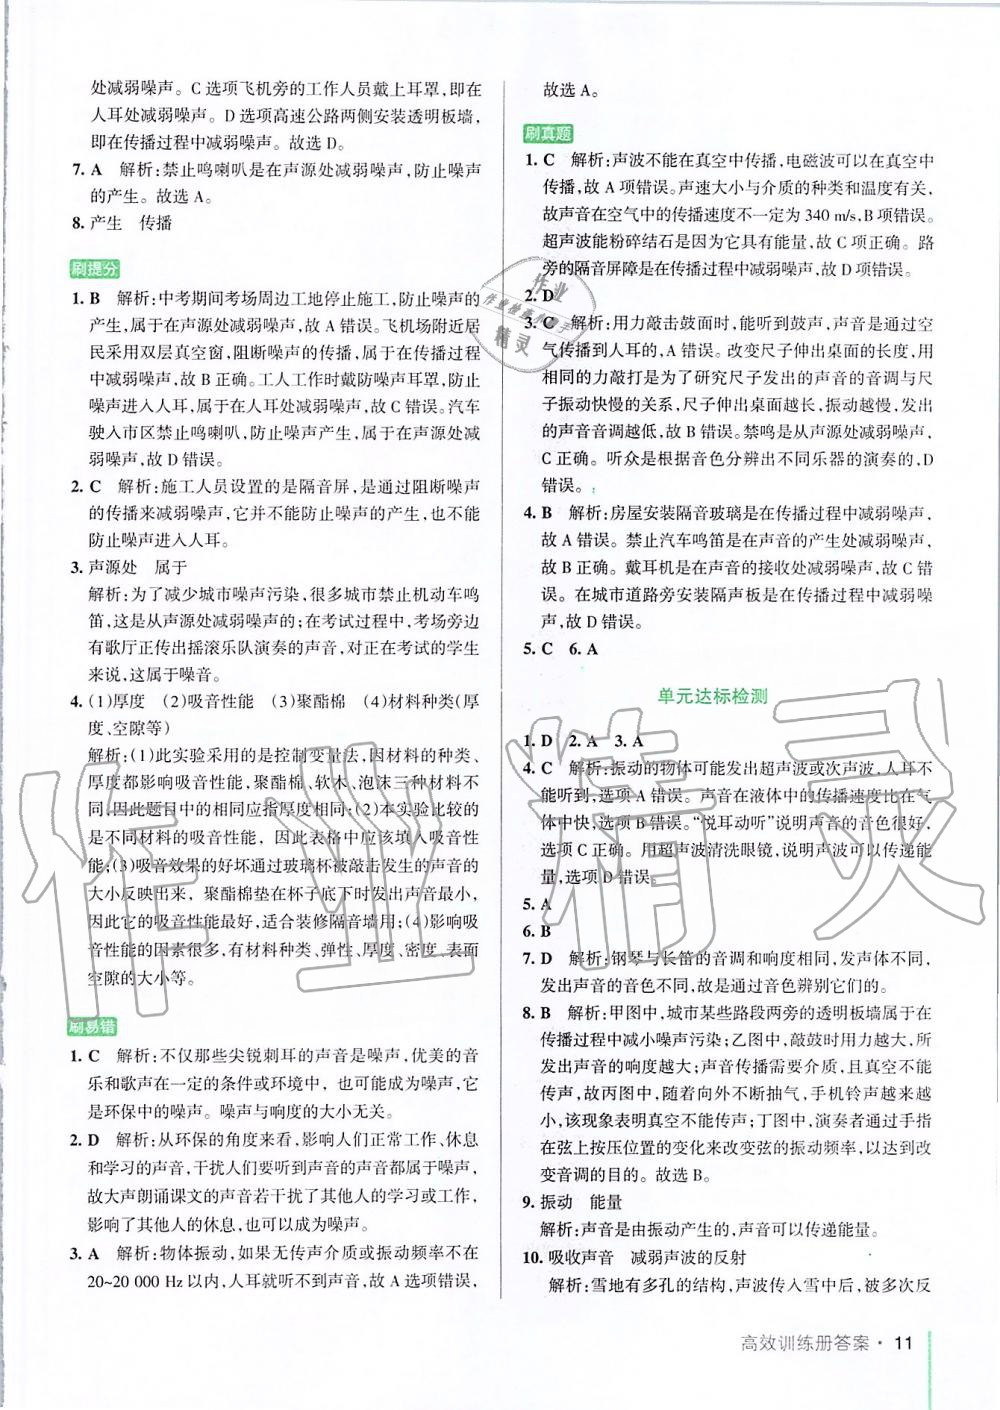 处减弱噪声。C 选项飞机旁的工作人员戴上耳罩,即在
人耳处减弱噪声。D 选项高速公路两侧安装透明板墙,
即在传播过程中减弱噪声。故选 D。
7. A 解析:禁止鸣喇叭是在声源处减弱噪声,防止噪声
的产生。故选 A。
8. 产生 传播
刷提分
1. B 解析:中考期间考场周边工地停止施工,防止噪声的
产生,属于在声源处减弱噪声,故 A 错误。飞机场附近居
民采用双层真空窗,阻断噪声的传播,属于在传播过程
中减弱噪声,故 B 正确。工人工作时戴防噪声耳罩,防止
噪声进入人耳,属于在人耳处减弱噪声,故 C 错误。汽车
驶入市区禁止鸣喇叭,防止噪声产生,属于在声源处减
弱噪声,故 D 错误。
2. C 解析:施工人员设置的是隔音屏,是通过阻断噪声
的传播来减弱噪声,它并不能防止噪声的产生,也不能
防止噪声进入人耳。
3. 声源处 属于
解析:为了减少城市噪声污染,很多城市禁止机动车鸣
笛,这是从声源处减弱噪声的;在考试过程中,考场旁边
有歌厅正传出摇滚乐队演奏的声音,对正在考试的学生
来说,这属于噪音。
4. (1)厚度 (2)吸音性能 (3)聚酯棉 (4)材料种类(密
度、空隙等)
解析:(1)此实验采用的是控制变量法,因材料的种类、
厚度都影响吸音性能,聚酯棉、软木、泡沫三种材料不
同,因此题目中的相同应指厚度相同;(2)本实验比较的
是不同材料的吸音性能,因此表格中应该填入吸音性
能;(3)吸音效果的好坏通过玻璃杯被敲击发生的声音的
大小反映出来,聚酯棉垫在杯子底下时发出声音最小,
因此它的吸音性能最好,适合装修隔音墙用;(4)影响吸
音性能的因素很多,有材料种类、弹性、厚度、密度、表面
空隙的大小等。
刷易错
1. C 解析:不仅那些尖锐刺耳的声音是噪声,优美的音
乐和歌声在一定的条件或环境中,也可能成为噪声,它
是环保中的噪声。噪声与响度的大小无关。
2. D 解析:从环保的角度来看,影响人们正常工作、休息
和学习的声音,干扰人们要听的声音的声音都属于噪声,
故大声朗诵课文的声音若干扰了其他人的学习或工作,
影响了其他人的休息,也可以成为噪声。
3. A 解析:物体振动,如果无传声介质或振动频率不在
20~20 000 Hz 以内,人耳就听不到声音,故 A 选项错误,
故选 A。
刷真题
1. C 解析:声波不能在真空中传播,电磁波可以在真空中
传播,故 A 项错误。声速大小与介质的种类和温度有关,
故声音在空气中的传播速度不一定为 340 m/s,B 项错误。
超声波能粉碎结石是因为它具有能量,故 C 项正确。路
旁的隔音屏障是在传播过程中减弱噪声,故 D 项错误。
2. D
3. C 解析:用力敲击鼓面时,能听到鼓声,声音是通过空
气传播到人耳的,A 错误。改变尺子伸出桌面的长度,用
相同的力敲打是为了研究尺子发出的声音的音调与尺
子振动快慢的关系,尺子伸出桌面越长,振动越慢,发出
的声音音调越低,故 B 错误。禁鸣是从声源处减弱噪声,
C 正确。听众是根据音色分辨出不同乐器的演奏的,D
错误。
4. B 解析:房屋安装隔音玻璃是在传播过程中减弱噪声,
故 A 错误。禁止汽车鸣笛是在声音的产生处减弱噪声,
故 B 正确。戴耳机是在声音的接收处减弱噪声,故 C 错
误。在城市道路旁安装隔声板是在传播过程中减弱噪
声,故 D 错误。
5. C 6. A
单元达标检测
1. D 2. A 3. A
4. C 解析:振动的物体可能发出超声波或次声波,人耳不
能听到,选项 A 错误。声音在液体中的传播速度比在气
体中快,选项 B 错误。“悦耳动听”说明声音的音色很好,
选项 C 正确。用超声波清洗眼镜,说明声波可以传递能
量,选项 D 错误。
5. A
6. B
7. D 解析:钢琴与长笛的音调和响度相同,发声体不同,
发出声音的音色不同,故是通过音色辨别它们的。
8. B 解析:甲图中,城市某些路段两旁的透明板墙属于在
传播过程中减小噪声污染;乙图中,敲鼓时用力越大,所
发出声音的响度越大;声音传播需要介质,且真空不能
传声,故丙图中,随着向外不断抽气,手机铃声越来越
小,该现象表明真空不能传声;丁图中,演奏者通过手指
在弦上按压位置的变化来改变弦的振动频率,以达到改
变音调的目的。故选 B。
9. 振动 能量
解析:声音是由振动产生的,声音可以传递能量。
10. 吸收声音 减弱声波的反射
解析:雪地有多孔的结构,声波传入雪中后,被多次反
高效训练册答案 · 11
作业
作业检查小助手
精灵
作业精灵